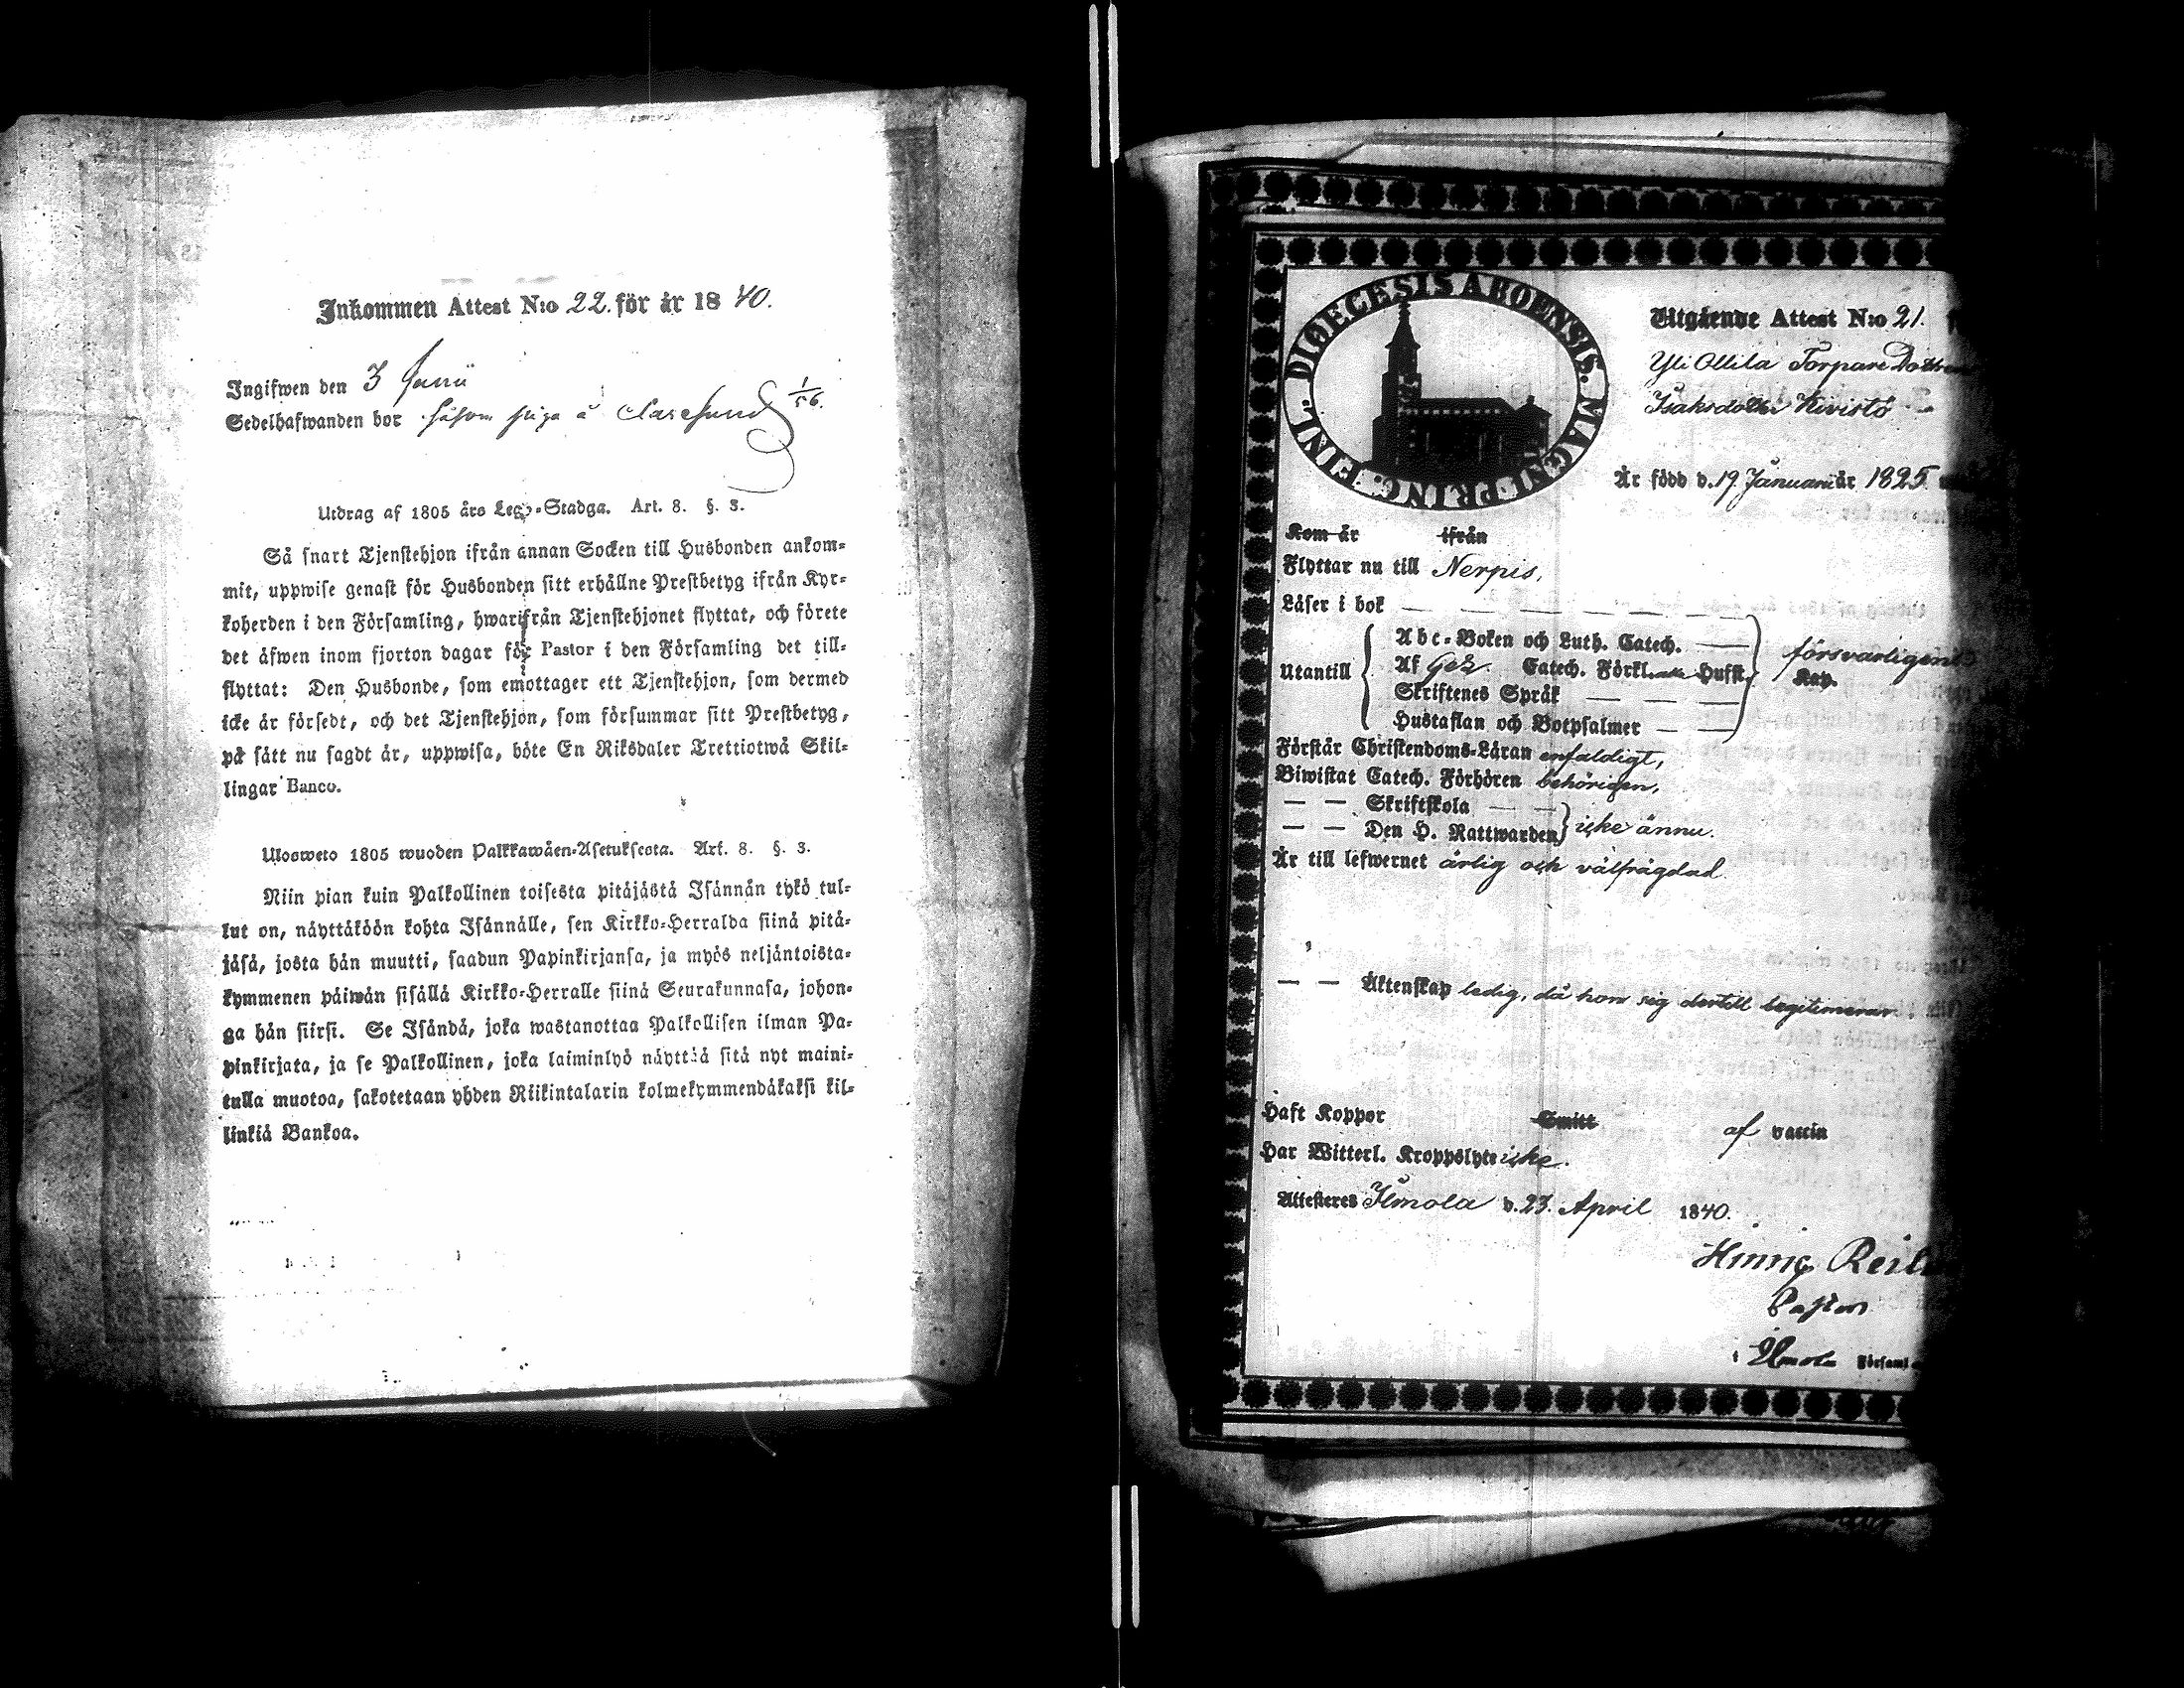 Inkommen Attest N:o 22. för år 1840.
Ingifwen den 3 Junii
Sedelhafwanden bor såsom piga å
Utdrag af 1805 års Lego-Stadga. Art. 8. §. 3.
Så snart Tjenstehjon ifrån annan Socken till Husbonden ankom-
mit, uppwise genast för Husbonden sitt erhållne Prestbetyg ifrån Kyr-
koherden i den Församling, hwarifrån Tjenstehjonet flyttat, och förete
det äfwen inom fjorton dagar för Pastor i den Församling det till-
flyttat: Den Husbonde, som emottager ett Tjenstehjon, som dermed
icke är försedt, och det Tjenstehjon, som försummar sitt Prestbetyg,
på sätt nu sagdt är, uppwisa, böte En Riksdaler Trettiotwå Skil-
lingar Banco.
Ulosweto 1805 wuoden Palkkawäen-Asetuksesta. Art. 8. §. 3.
Niin pian kuin Palkollinen toisesta pitäjästä Isännän tykö tul-
lut on, näyttäköön kohta Isännälle, sen Kirkko-Herralda siinä pitä-
jäsä, josta hän muutti, saadun Papinkirjansa, ja myös neljäntoista-
kymmenen päiwän sisällä Kirkko-Herralle siinä Seurakunnasa, johon-
ga hän siirsi. Se Isändä, joka wastanottaa Palkollisen ilman Pa-
pinkirjata, ja se Palkollinen, joka laiminlyö näyttää sitä nyt maini-
tulla muotoa, sakotetaan yhden Riikintalarin kolmekymmendäkaksi kil-
linkiä Bankoa.
DIOECESIS ABOENSIS. MAGNI PRINC. FINL.
Utgående Attest N:o 21.
Yli Ollila Torpare
Isaksdotter Kivistö
Är född d. 19 Januari år 1825
Kom år ifrån
Flyttar nu till Nerpis,
Läser i bok — — — — — —
Utantill
Abc-Boken och Luth. Catech. —
Af Gez. Catech. Förkl. Hufst. försvarligen Kap.
Skriftenes Språk — — —
Hustaflan och Botpsalmer — —
Förstår Christendoms-Läran enfaldigt,
Biwistat Catech. Förhören behörigen,
— — Skriftskola — —
— — Den H. Nattwarden icke ännu.
Är till lefwernet ärlig och välfrägdad.
— — Äktenskap ledig, då hon sig dertill legitimerar.
Haft Koppor Smitt af vaccin
Har Witterl. Kroppslyte icke.
Attesteres Ilmola d. 23. April 1840.
Pastor
i Ilmola Församl